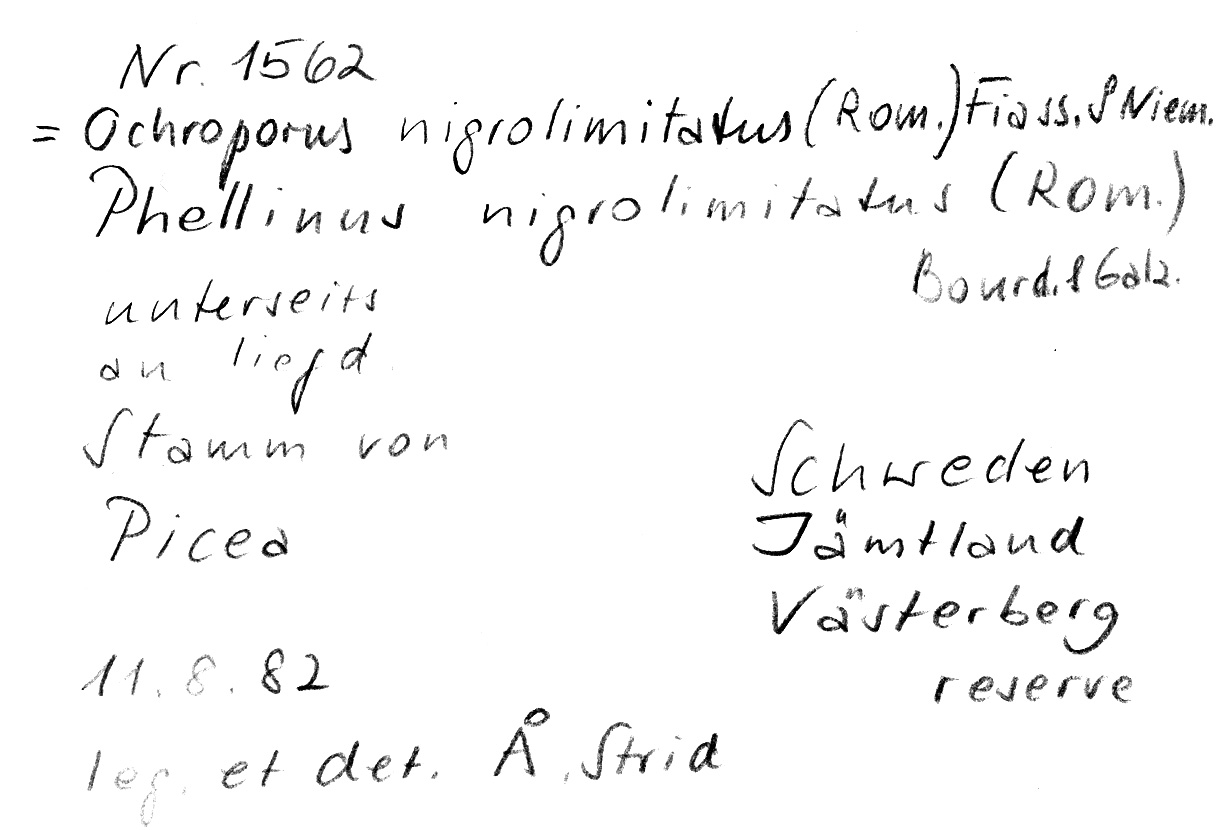 Nr. 1562
= Ochroporus nigrolimitatus (Rom.) Fiass. & Niem.
Phellinus nigrolimitatus (Rom.)
Bourd. & Galz.
unterseits
an liegd
Stamm von
Picea
Schweden
Jämtland
Västerberg
reserve
11.8.82
leg. et det. Å. Strid